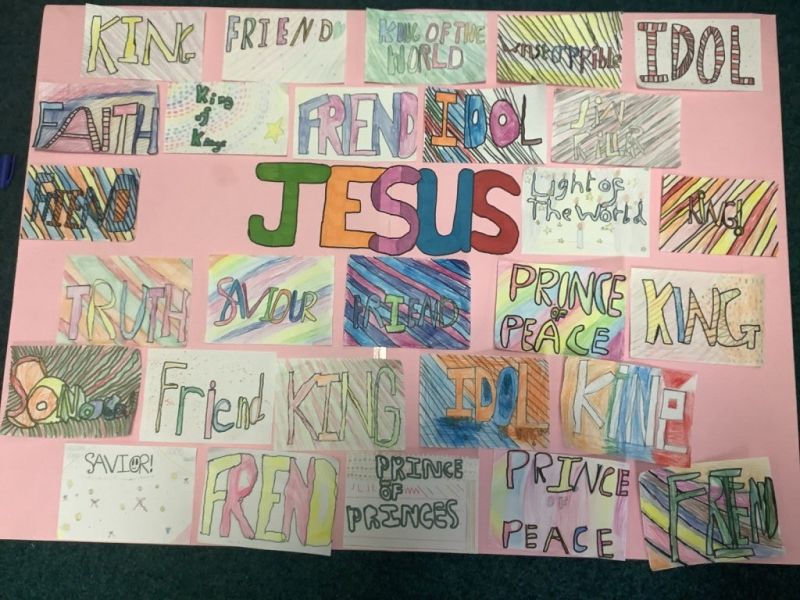 KING
FRIEND
KING OF THE
WORLD
IDOL
FAITH
King
of
Kings
FRIEND
IDOL
SIN
FRIEND
JESUS
Light of
The World
KING!
TRUTH
SAVIOUR
FRIEND
PRINCE
OF
PEACE
KING
Friend
KING
IDOL
KING
SAVIOR!
FREND
PRINCE
OF
PRINCES
PRINCE
OF
PEACE
FRIEND